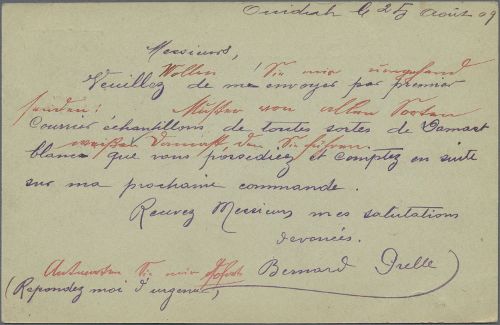 Ouidah le 25 Août 09
Messieurs,
Wollen Sie mir umgehend
Veuillez de me envoyer par premier
senden: Muster von allen Sorten
Courrier échantillons de toutes sortes de Damart
weißer Damast den Sie führen.
blanc que vous possediez et comptez en suite
sur ma prochaine commande.
Recevez Messieurs mes salutations
devouées.
Antworten Sie mir sofort
Bernard
(Repondez moi d'urgence)